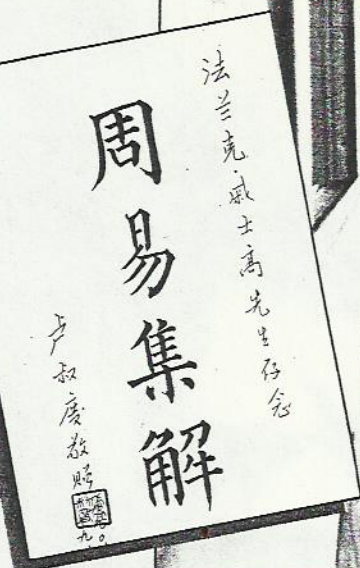 法兰克·威士高先生存念
周易集解
卢叔度敬贻
九〇